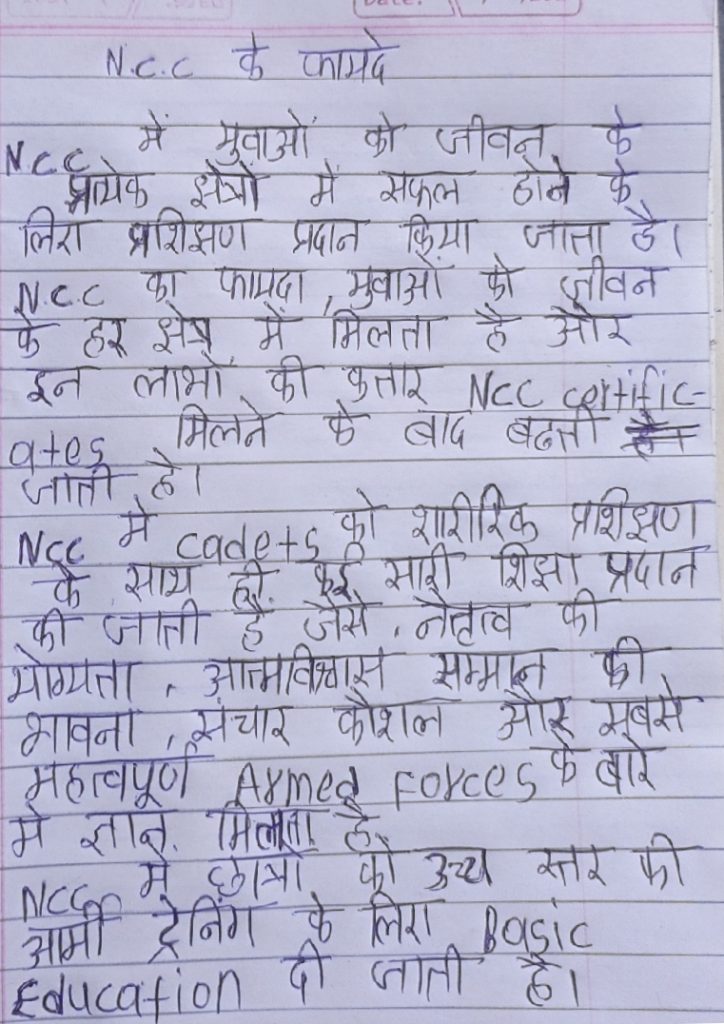 Date:
N.C.C के फायदे
NCC में युवाओं को जीवन के
प्रत्येक क्षेत्रों में सफल होने के
लिए प्रशिक्षण प्रदान किया जाता है।
N.C.C का फायदा, युवाओं को जीवन
के हर क्षेत्र में मिलता है और
इन लाभों की कतार NCC certific-
ates मिलने के बाद बढती
जाती है।
NCC में cadets को शारीरिक प्रशिक्षण
के साथ ही. कई सारी शिक्षा प्रदान
की जाती है जैसे, नेतृत्व की
योग्यता, आत्मविश्वास सम्मान की
भावना, संचार कौशल और सबसे
महत्वपूर्ण Armed Forces के बारे
में ज्ञान. मिलता है.
NCC में छात्रों को उच्च स्तर की
आर्मी ट्रेनिंग के लिए Basic
Education दी जाती है।